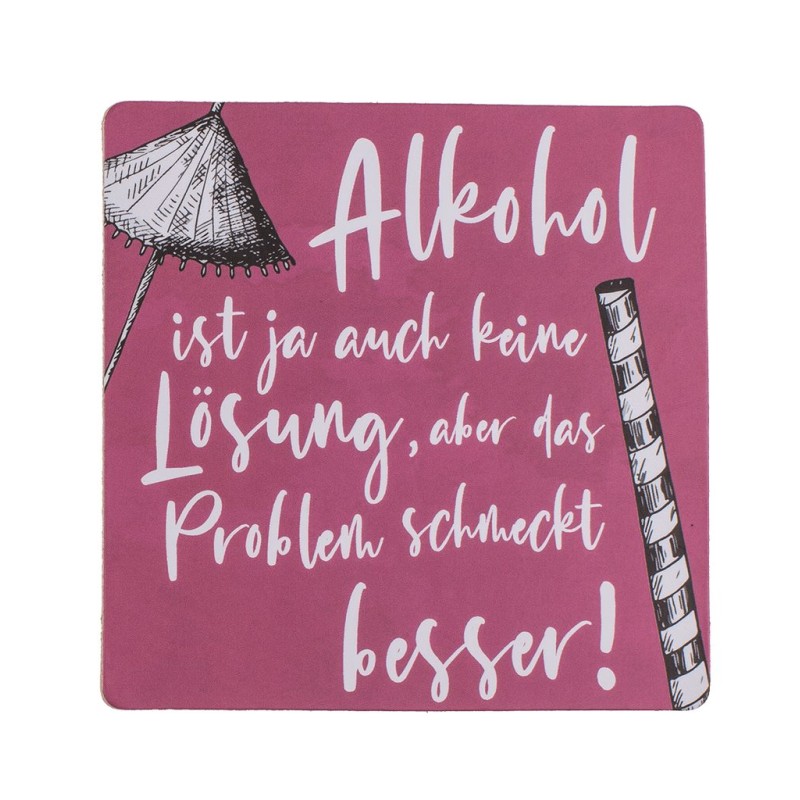 Alkohol
ist ja auch keine
Lösung, aber das
Problem schmeckt
besser!